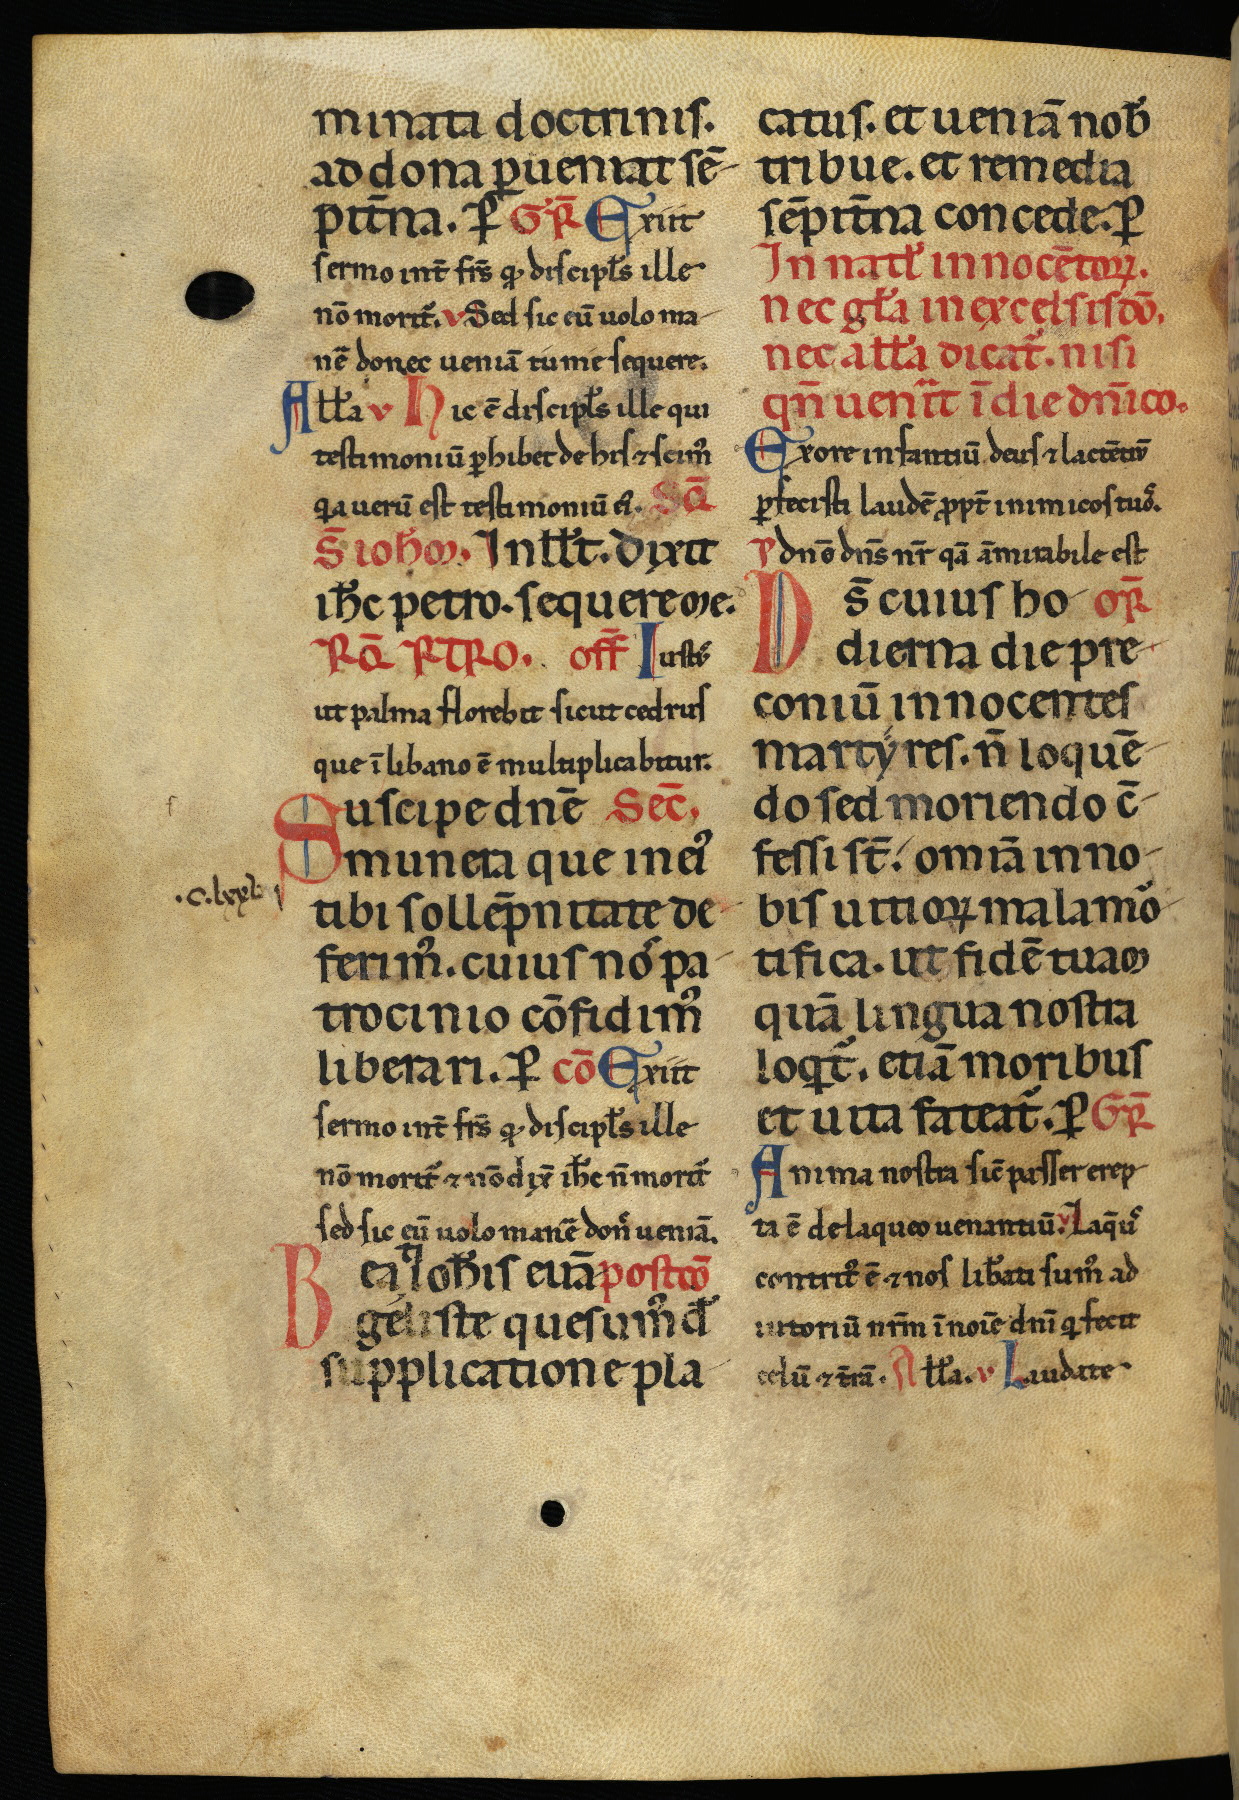 minata doctrinis.
ad dona ꝑueniat sē-
pit̄na. P̄ Gͬꝶ Exiit
sermo int̄ frs̄ ꝙ discipl̄s ille
nō morit᷑. v Sed sic eū uolo ma-
nē donec ueniā tu me sequere.
All̄a v Hic ē discipl̄s ille qui
testimoniū ꝑhibet de his ⁊ scimꝰ
q̇a uerū est testimoniū eiꝰ. Sꝙ̄
S̄ ioh̄m. In ill̄t. dixit
ih̄c petro. sequere me.
Rꝙ̄ RTRO. off̄ Iustꝰ
ut palma florebit sicut cedrus
que ī libano ē multiplicabitur.
Suscipe dnē Sec̄.
munera que in eiꝰ
.c.lxxl
tibi sollēpnitate de-
ferimꝰ. cuius noꝰ pa-
trocinio cōfidimꝰ
liberari. P̄ cō Exiit
sermo int̄ frs̄ ꝙ discipl̄s ille
nō morit᷑ ⁊ nō dix̄ ih̄c n̄ morit᷑
sed sic eū uolo manē donͨ ueniā.
Beati ioh̄is euā postcō
geliste quesumꝰ d̄s
supplicatione pla-
catus. et ueniā nob̄
tribue. et remedia
sēpit̄na concede. P̄
In natl̄ innocētoꝝ.
nec gl̄a in excelsis dō.
nec all̄a dicat᷑. nisi
qn̄ uen̄it ī die dn̄ico.
Ex ore infantiū deus ⁊ lactētiū
ꝑfecisti laudē ꝓpt̄ inimicos tuoꝰ.
P dnē dn̄s nr̄ qā āmirabile est
Ds̄ cuius ho- oꝶ
dierna die pre-
coniū innocentes
martyres. n̄ loquē-
do sed moriendo c̄-
fessi st̄. omiā in no-
bis uitioꝝ mala moꝰ-
tifica. ut fidē tuam
quā lingua nostra
loqt᷑. etiā moribus
et uita fateat᷑. P̄ Gꝶ
Anima nostra sic̄ passer erep-
ta ē de laqueo uenantiū. v Laq̄uꝰ
contritꝰ ē ⁊ nos lib̄ati sumꝰ ad-
iutoriū nrm̄ ī noīe dnī q̇ fecit
celū ⁊ t̄rā. All̄a. v Laudate